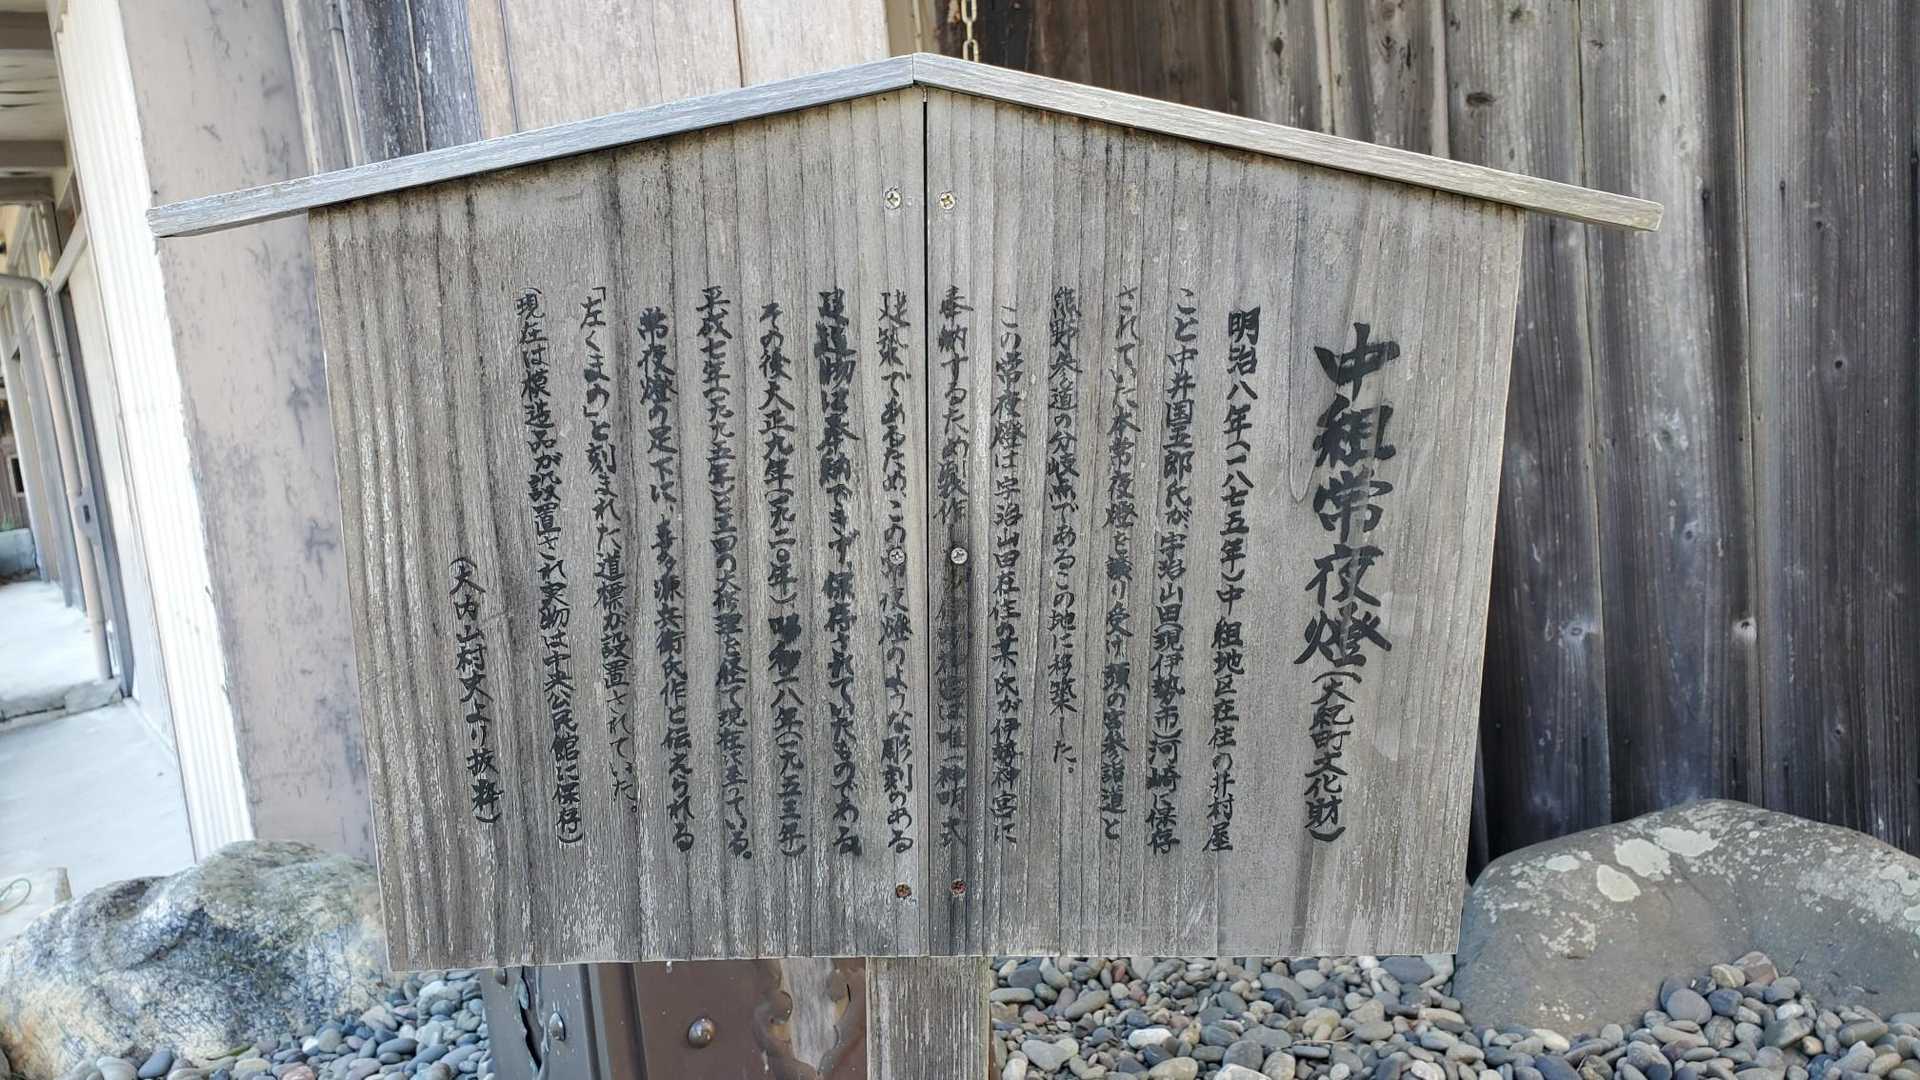 中組常夜燈(大紀町文化財)
明治八年(一八七五年)中組地区在住の井村屋
こと中井国五郎氏が、宇治山田(現伊勢市)河崎に保存
されていた本常夜燈を譲り受け頭の宮参詣道と
熊野参道の分岐点であるこの地に移築した。
この常夜燈は宇治山田在住の某氏が伊勢神宮に
奉納するため製作 は唯一神明式
建築であるため、この常夜燈のような彫刻のある
建造物は奉納できず、保存されていたものである。
その後大正九年(一九二〇年)昭和二八年(一九五三年)
平成七年(一九九五年)と三回の大修理を経て現在に至っている。
常夜燈の足下に、喜多源兵衛氏作と伝えられる
「左くまの」と刻まれた道標が設置されていた。
(現在は模造品が設置され実物は中央公民館に保存)
(大内山村史より抜粋)